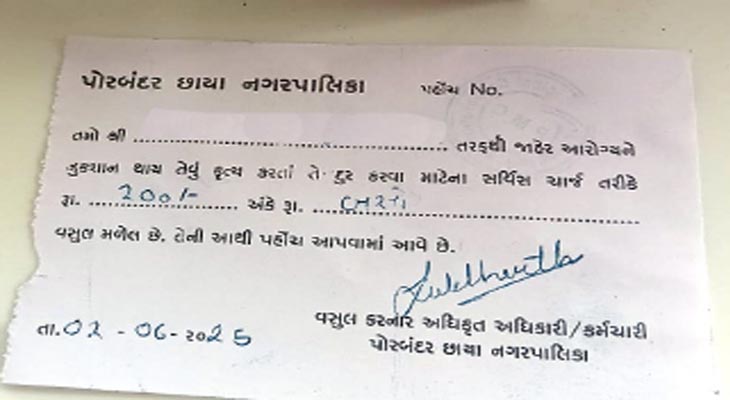 પોરબંદર છાયા નગરપાલિકા પહોંચ No.
તમો શ્રી ........................ તરફથી જાહેર આરોગ્યને
નુકશાન થાય તેવું કૃત્ય કરતાં તે દુર કરવા માટેના સર્વિસ ચાર્જ તરીકે
રૂા. 200/- અંકે રૂા.
વસુલ મળેલ છે. તેની આથી પહોંચ આપવામાં આવે છે.
વસુલ કરનાર અધિકૃત અધિકારી/કર્મચારી
તા. 02 - 06 - ૨૦25 પોરબંદર છાયા નગરપાલિકા